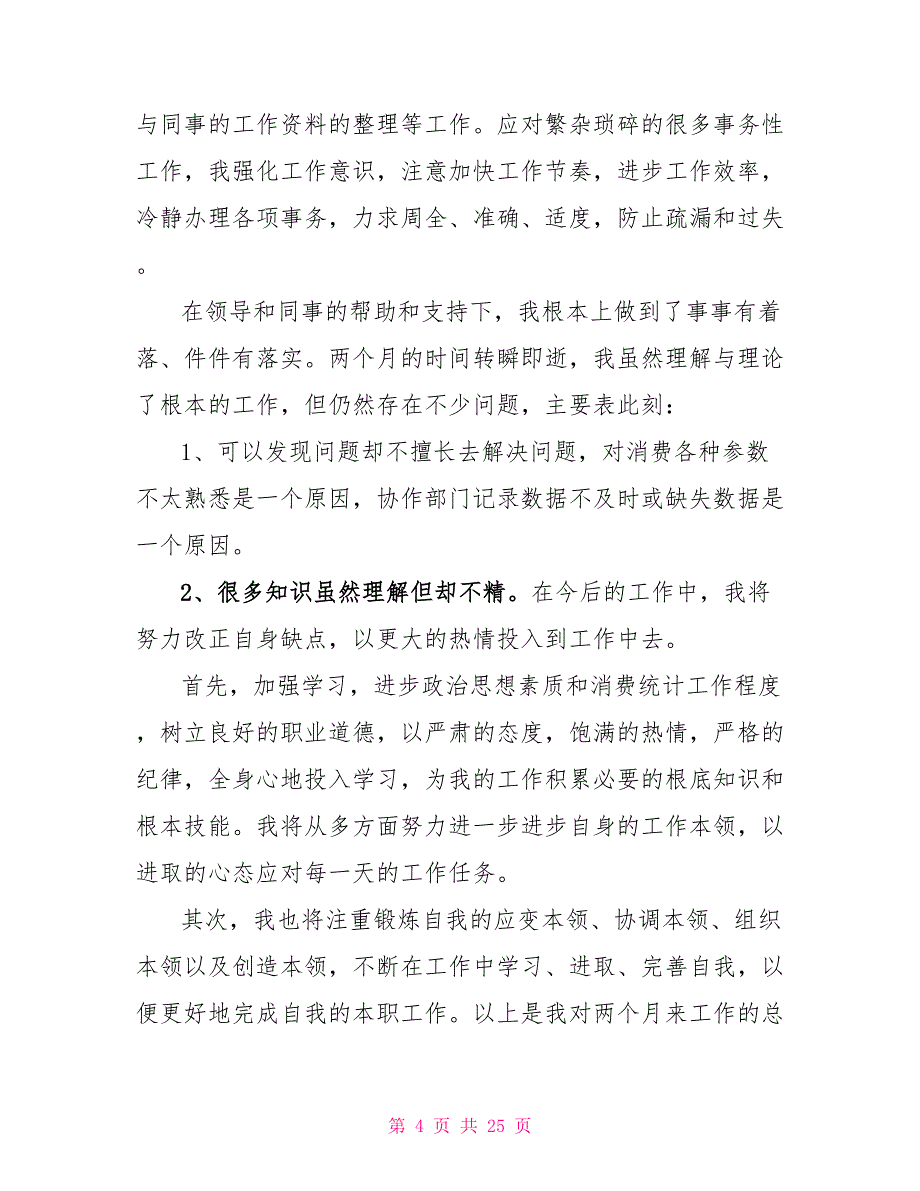 与同事的工作资料的整理等工作。应对繁杂琐碎的很多事务性
工作，我强化工作意识，注意加快工作节奏，进步工作效率，
冷静办理各项事务，力求周全、准确、适度，防止疏漏和过失
。
在领导和同事的帮助和支持下，我根本上做到了事事有着
落、件件有落实。两个月的时间转瞬即逝，我虽然理解与理论
了根本的工作，但仍然存在不少问题，主要表此刻：
1、可以发现问题却不擅长去解决问题，对消费各种参数
不太熟悉是一个原因，协作部门记录数据不及时或缺失数据是
一个原因。
2、很多知识虽然理解但却不精。在今后的工作中，我将
努力改正自身缺点，以更大的热情投入到工作中去。
首先，加强学习，进步政治思想素质和消费统计工作程度
，树立良好的职业道德，以严肃的态度，饱满的热情，严格的
纪律，全身心地投入学习，为我的工作积累必要的根底知识和
根本技能。我将从多方面努力进一步进步自身的工作本领，以
进取的心态应对每一天的工作任务。
其次，我也将注重锻炼自我的应变本领、协调本领、组织
本领以及创造本领，不断在工作中学习、进取、完善自我，以
便更好地完成自我的本职工作。以上是我对两个月来工作的总
第 4 页 共 25 页